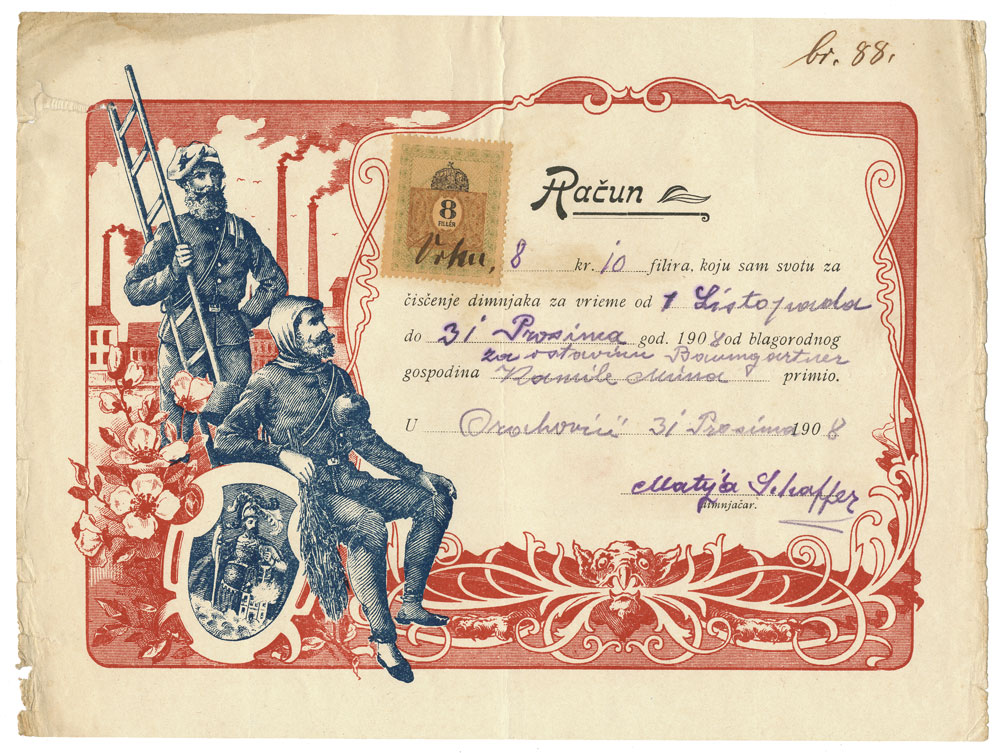 br. 88.
Račun
8
FILLÉR
8 kr. 10 filira, koju sam svotu za
čisčenje dimnjaka za vrieme od 1 Listopada
do 31 Prosinca god. 1908 od blagorodnog
za ostavinu Baumgartner
gospodina Kamile primio.
U 31 Prosinca 1908
Matija Schaffer
dimnjačar.